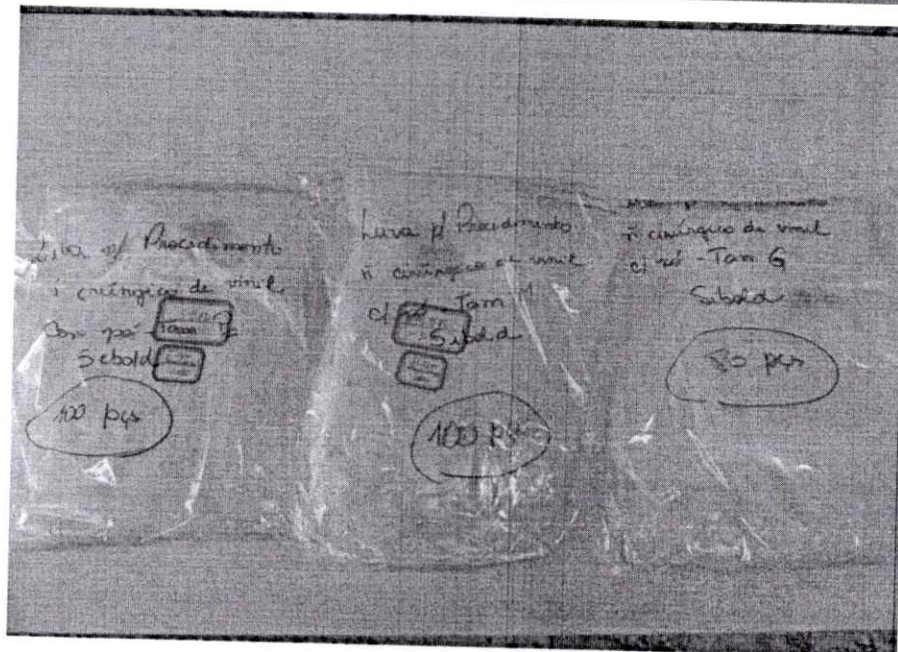 Luva p/ Procedimento
ñ cirúrgica de vinil
Com pó - Tam P
Sebold
100 pçs
Luva p/ Procedimento
ñ cirúrgica de vinil
c/ pó Tam M
Sebold
100 pçs
ñ cirúrgica de vinil
c/ pó - Tam G
Sebold
80 pçs